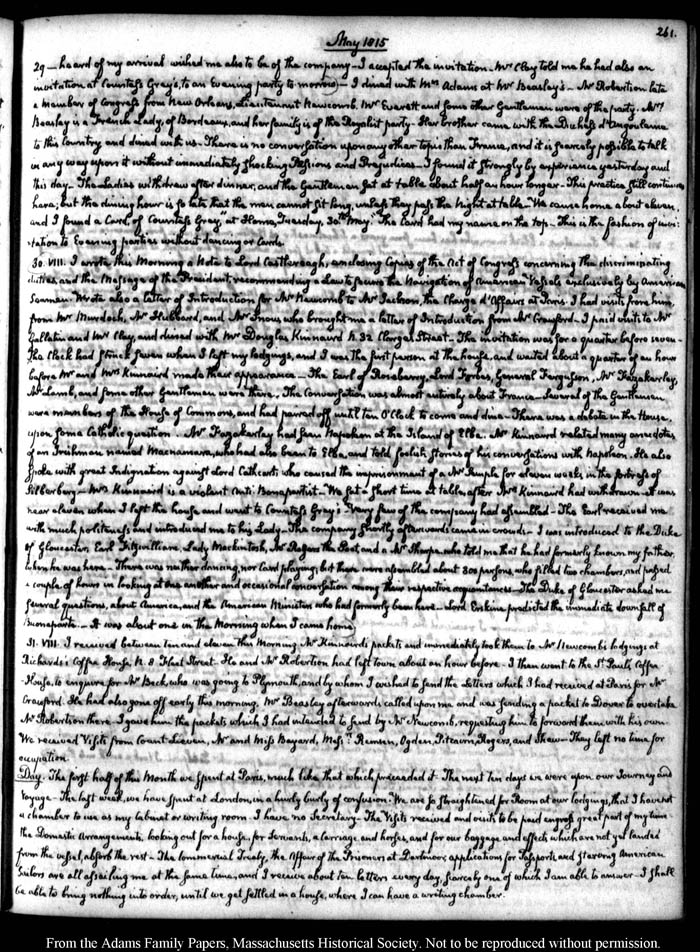 261.
May 1815
29 — heard of my arrival wished me also to be of the company — I accepted the invitation. Mr Clay told me he had also an
invitation at Countess Grey's, to an Evening party to-morrow) — I dined with Mrs Adams at Mr Beasley's — Mr Robertson late
a Member of Congress from New Orleans, Lieutenant Newcomb, Mr Everett and some other Gentlemen were of the party. Mrs
Beasley is a French Lady, of Bordeaux, and her family is of the Royalist party — Her brother came with the Duchess d'Angouleme
to this Country and dined with us. There is no conversation upon any other topic than France, and it is scarcely possible to talk
in any way upon it without immediately shocking Passions and Prejudices — I found it strongly by experience yesterday and
this day. The Ladies withdrew after dinner, and the Gentlemen sat at table about half an hour longer — This practice still continues
here, but the dining hour is so late that the men cannot sit long, unless they pass the Night at table. We came home about eleven,
and I found a Card, of "Countess Grey," at Home, Tuesday, 30th May." The Card had my name on the top — This is the fashion of invi:
:tation to Evening parties without dancing or Cards.
30. VIII. I wrote this Morning a Note to Lord Castlereagh, enclosing Copies of the Act of Congress concerning the discriminating
duties, and the Message of the President, recommending a Law to secure the Navigation of American Vessels exclusively by American
Seamen. Wrote also a letter of Introduction for Mr Newcomb to Mr Jackson, the Chargé d'Affaires at Paris. I had visits from him,
from Mr Murdoch, Mr Hubbard, and Mr Snow, who brought me a letter of Introduction from Mr Crawford — I paid visits to Mr
Gallatin and Mr Clay, and dined with Mr Douglas Kinnaird N. 32 Clarges Street — The invitation was for a quarter before seven —
The Clock had struck seven when I left my lodgings, and I was the first person at the house, and waited about a quarter of an hour
before Mr and Mrs Kinnaird made their appearance — The Earl of Roseberry, Lord Forbes, General Ferguson, Mr Fazakerley,
Mr Lamb, and some other Gentlemen were there. The Conversation was almost entirely about France — Several of the Gentlemen
were members of the House of Commons, and had paired off until ten O'Clock to come and dine — There was a debate in the House,
upon some Catholic question. Mr Fazakerley had seen Napoleon at the Island of Elba. Mr Kinnaird related many anecdotes
of an Irishman named Macnamara, who had also been to Elba, and told foolish stories of his conversations with Napoleon. He also
spoke with great Indignation against Lord Cathcart, who caused the imprisonment of a Mr Semple for eleven weeks in the fortress of
Silberberg — Mrs Kinnaird is a violent Anti Bonapartist — We sat a short time at table, after Mrs Kinnaird had withdrawn. It was
near eleven when I left the house and went to Countess Grey's. Very few of the company had assembled — The Earl received me
with much politeness and introduced me to his Lady — The company shortly afterwards came in crowds — I was introduced to the Duke
of Gloucester, Earl Fitzwilliam, Lady Mackintosh, Mr Rogers the Poet and a Mr Sharpe, who told me that he had formerly known my father,
when he was here — There was neither dancing, nor Card playing; but there were assembled about 300 persons, who filled two chambers, and passed
a couple of hours in looking at one another and occasional conversation among their respective acquaintances — The Duke of Gloucester asked me
several questions, about America, and the American Ministers who had formerly been here — Lord Erskine predicted the immediate downfall of
Buonaparte. — It was about one in the Morning when I came home.
31. VIII. I received between ten and eleven this Morning Mr Kinnaird's packets and immediately took them to Mr Newcomb's lodgings at
Richards's Coffee House N. 8 Fleet Street. He and Mr Robertson had left town about an hour before — I then went to the St Paul's Coffee
-House, to enquire for Mr Beck, who was going to Plymouth, and by whom I wished to send the Letters which I had received at Paris for Mr
Crawford. He had also gone off early this morning. Mr Beasley afterwards called upon me and was sending a packet to Dover to overtake
Mr Robertson there. I gave him the packets which I had intended to send by Mr Newcomb, requesting him to forward them with his own.
We received Visits from Count Lieven, Mr and Miss Bayard, Mess:rs Remsen, Ogden, Pitcairn, Rogers, and Shaw — They left no time for
occupation.
Day. The first half of this Month we spent at Paris, much like that which preceeded it. The next ten days we were upon our Journey and
Voyage — The last week, we have spent at London, in a hurly burly of confusion. We are so straightened for Room at our lodgings, that I have not
a chamber to use as my cabinet or writing room. I have no Secretary — The Visits received and visits to be paid engross great part of my time
the Domestic Arrangements, looking out for a house, for Servants, a carriage, and horses, and for our baggage and effects which are not yet landed
from the vessel, absorb the rest — The Commercial Treaty, the Affair of the Prisoners at Dartmoor, applications for Passports, and starving American
Sailors are all assailing me at the same time, and I receive about ten letters every day, scarcely one of which I am able to answer — I shall
be able to bring nothing into order, until we get settled in a house, where I can have a writing chamber.
From the Adams Family Papers, Massachusetts Historical Society. Not to be reproduced without permission.